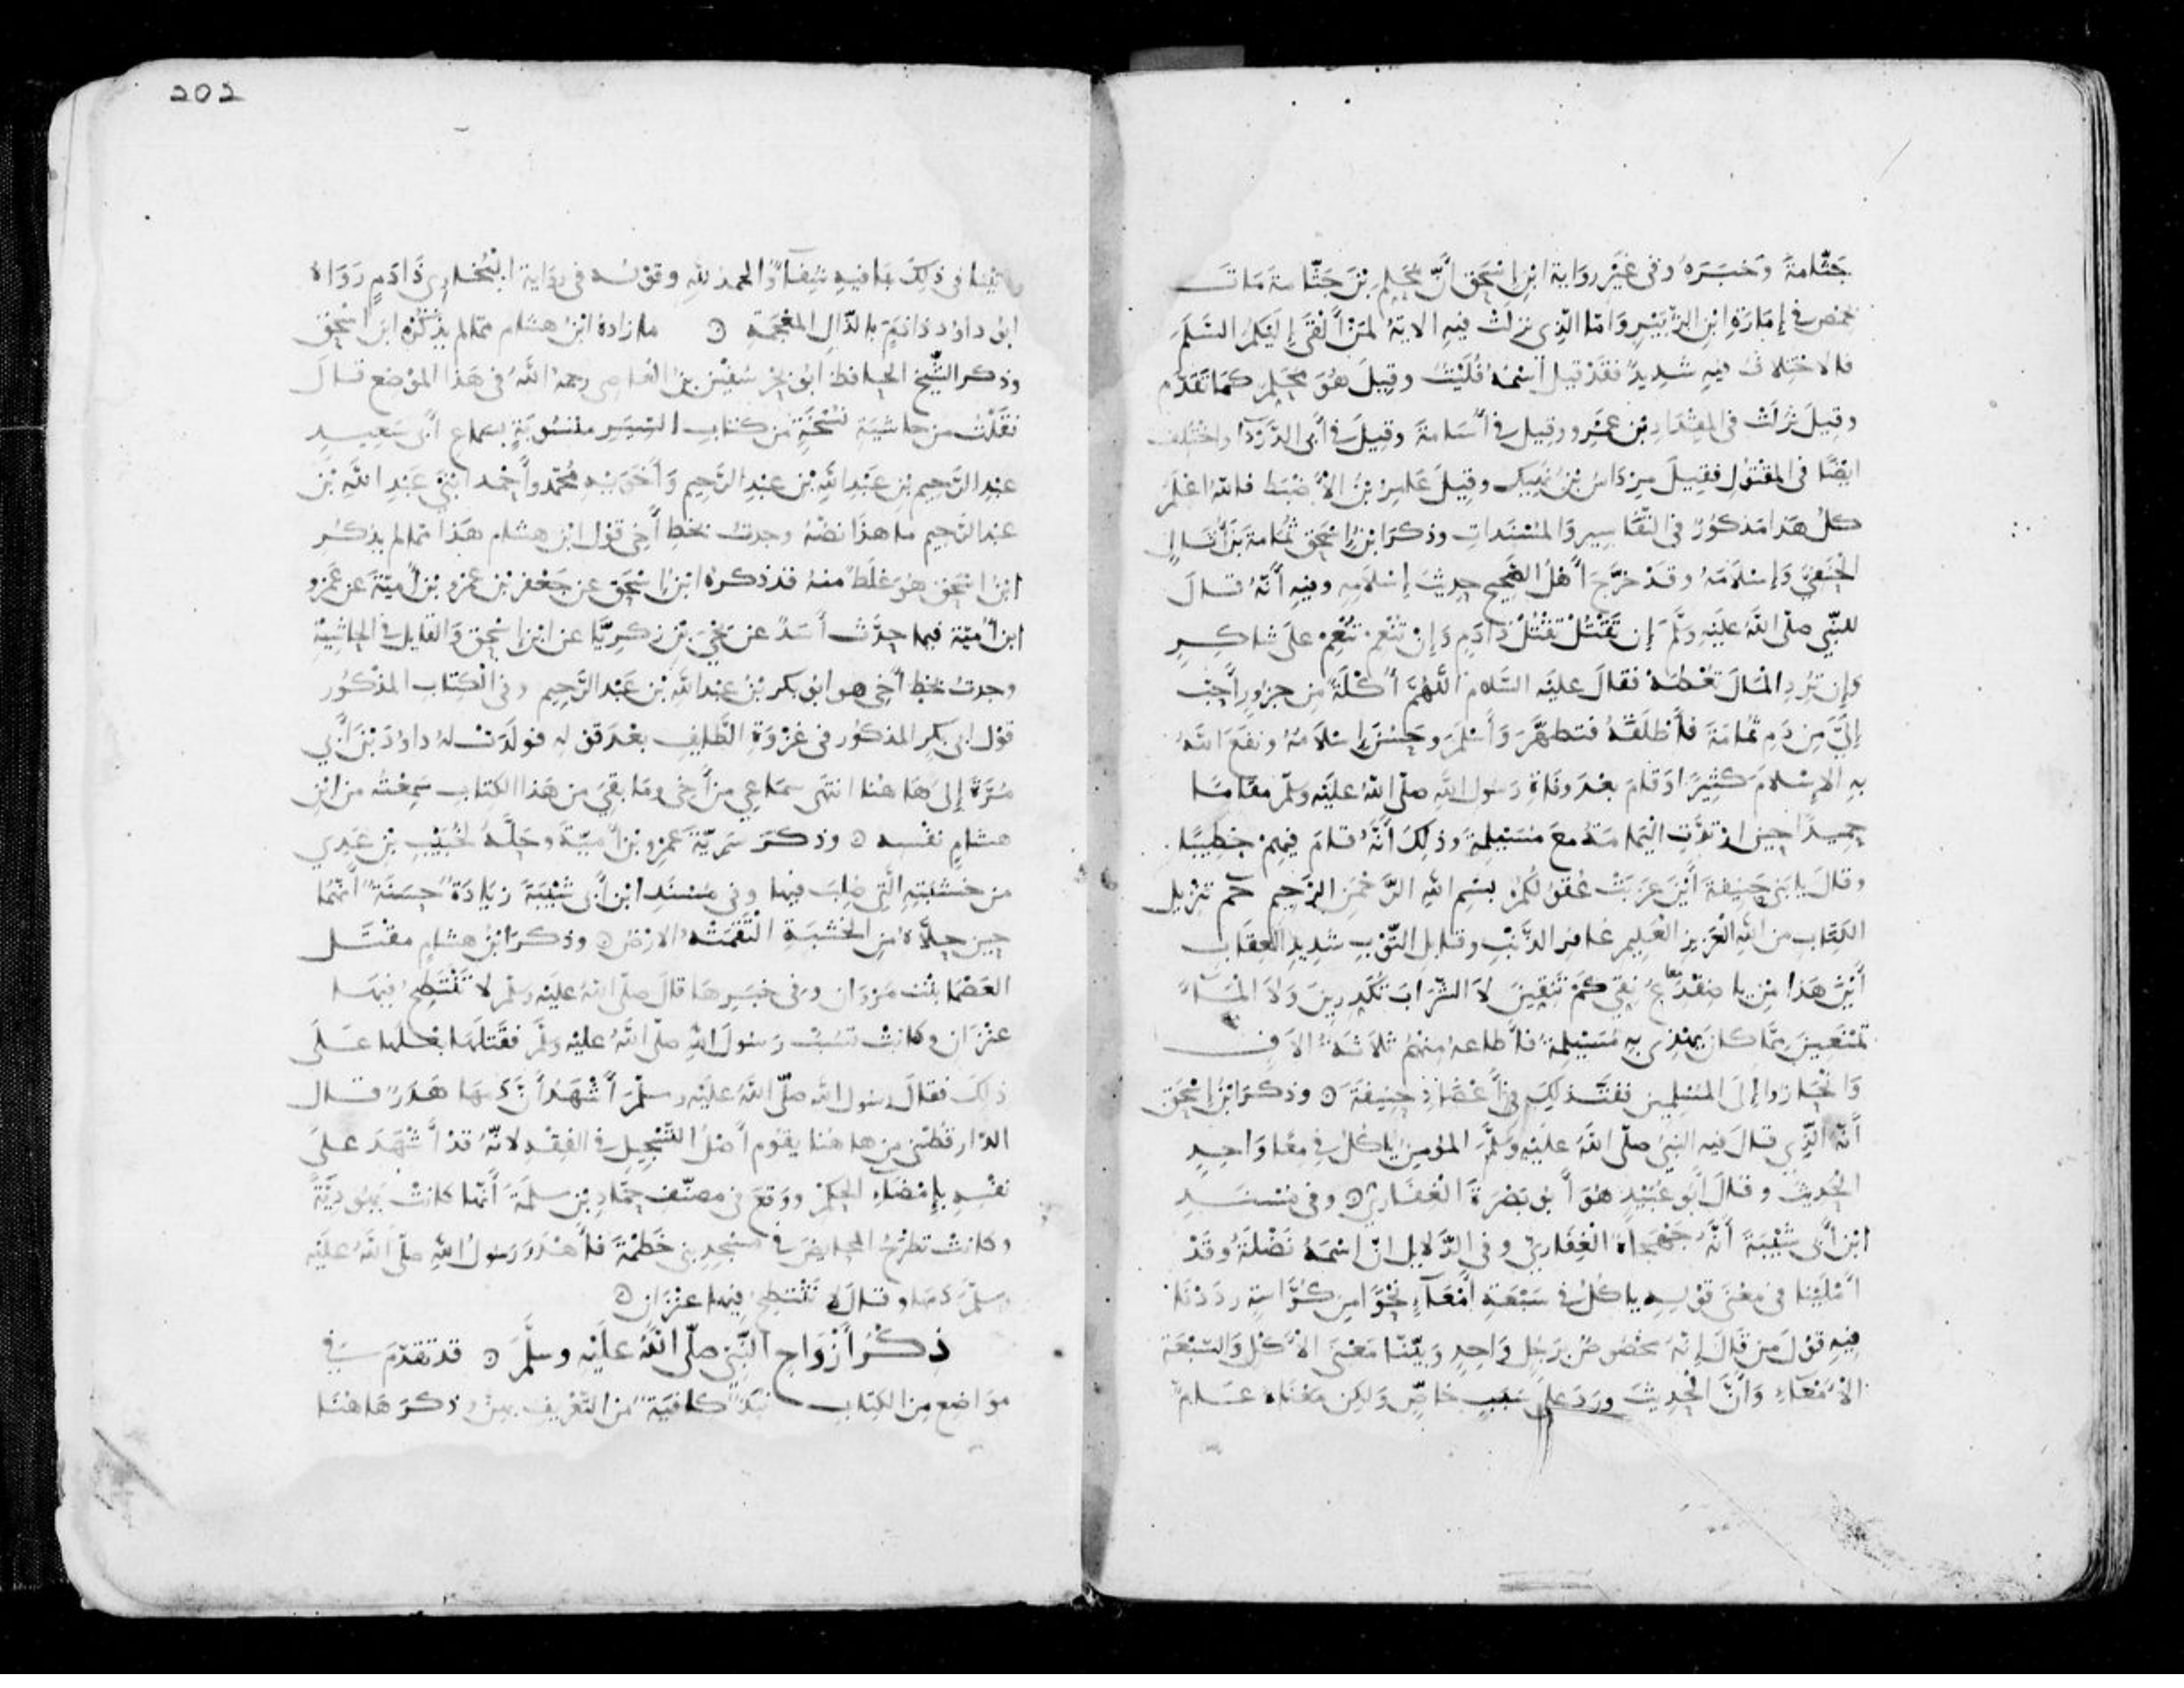 جَثّامةَ وَخبَرَهُ وفى غَيْرِ رِوَاية ابْنِ إسْحَق أَنَّ مُحَلِّم بْنَ جَثّامةَ مَاتَ
بحمص فى إمَارَةِ ابْنِ الزُّبَيْرِ وَامّا الّذِى نزلَتْ فيهِ الايةُ لمَنْ ألْقَى إلَيْكمُ السَّلَمَ
فالاختِلافُ فيهِ شدِيدٌ فقَدْ قيل اسْمُهُ فُلَيْتٌ وقِيلَ هُوَ مُحَلِّم كمَا تَقَدَّم
وقِيلَ نزلَتْ فى المِقْدَادِ بْن عمْرو وقِيل فى أُسَامةَ وقِيلَ فى أَبى الدَّرْدَا واخْتُلف
ايْضًا فى المقْتُولِ فقِيلَ مِرْدَاسُ بْنُ نَهِيك وقِيلَ عَامِرُ بْنُ الأَضْبَط فاللهُ اعْلَمُ
كلُّ هَذا مَذكُورٌ فى التّفَاسِير وَالمُسْنَداتِ وذكرَ ابْنُ إسْحَق ثُمَامةَ بْنَ أُثَالٍ
الحَنَفِيَّ وَإِسْلَامَهُ وقَدْ خرَّجَ أَهْلُ الصَّحِيحِ حدِيثَ إِسْلَامِهِ وفيهِ أنّهُ قالَ
للنّبِّي صلّى اللهُ علَيْهِ وسَلَّمَ إن تَقْتُلْ تَقْتُلْ ذَادَمٍ وَإنْ تُنْعِمْ تُنْعِمْ علَى شاكِرٍ
وَإن تُرِدِ المَالَ تُعْطَهْ فقَالَ علَيْهِ السَّلام اللّهُمَّ أُكْلَةٌ مِن جزُورٍ أَحبّ
إلَيَّ مِن دَمِ ثُمَامَةَ فأَطْلَقَهُ فتَطهَّرَ وَأَسْلَمَ وحَسُنَ إسْلَامُهُ ونفَعَ اللهُ
بهِ الاِسْلامَ كثِيرًا وَقامَ بعْدَ وفَاةِ رَسُولِ اللهِ صلّى اللهُ علَيْهِ وسَلَّم مقَامًا
حمِيدًا حِينَ ارْتدَّتِ اليَمامَةُ مَعَ مُسَيْلِمةَ وذلِكَ أنَّهُ قامَ فيهِمْ خطِيبًا
وقالَ يا بَنى حَنِيفةَ أَيْنَ عزَبَتْ عُقُولُكُمْ بسْمِ اللهِ الرَّحْمَنِ الرَّحِيمِ حم تنْزِيل
الكِتَابِ من اللهِ العَزِيزِ العَلِيمِ غافِر الذَّنْبِ وقابِلِ التّوْبِ شدِيدِ العِقَابِ
أَيْنَ هَذا مِن يا ضِفْدَعُ نِقِّي كمْ تَنِقِّينَ لا الشّرَابَ تكَدِّرِينَ وَلا المَاءَ
تمْنَعِينَ ممّا كانَ يَهْذِى بهِ مُسَيْلِمةُ فأَطاعهُ منْهُمْ ثلَاثَةُ الاَفٍ
وَانْحَازُوا إلَى المُسْلِمِين ففَتَّ ذلِكَ فى أَعْضَادِ حنِيفَةَ ۞ وذكَرَ ابْنُ إسْحَق
أنّهُ الّذِي قالَ فيهِ النّبيُّ صلّى اللهُ علَيْهِ وسَلَّم المُؤمنُ ياكلُ فى مِعًا وَاحدٍ
الحَدِيثَ وقالَ أبُو عُبَيْدٍ هُوَ أبُو بَصْرَةَ الغِفَارِيُّ ۞ وفى مُسْنَدِ
ابْنِ أَبى شَيْبَةَ أَنَّهُ جَهْجَاهُ الغِفَارِيُّ وفى الدَّلايل انّ اسْمَهُ نَضْلَةُ وقَدْ
امْلَيْنا فى مَعْنَى قوْلهِ ياكُلُ فى سَبْعَةِ أَمْعَاءٍ نحْوًا مِن كُرَّاسةٍ ردَدْنَا
فيهِ قوْلَ مَن قَالَ إنّهُ مخْصُوصٌ برَجُلٍ وَاحِدٍ وَبيّنّا مَعْنَى الأَكْلِ وَالسّبْعَة
الاَمْعَاءِ وَأَنَّ الحَدِيثَ ورَدَ علَى سَبَبٍ خَاصٍّ وَلكِن مَعْنَاهُ عامٌّ
202
فى ذلِكَ بمَا فيهِ شِفَاءٌ وَالحمدُ للهِ وقوْلهُ فى رِوَاية البُخَارِى ذَادَمٍ رَوَاهُ
ابُو داوُد ذاذَمٍّ بالذّالِ المعْجَمةِ ۞ ما زادهُ ابْنُ هشام ممّا لم يذْكُرْهُ ابْنُ اسْحَق
وذكر الشّيخُ الحافظ ابُو بحْر سُفْيَن بْنُ العَاصِى رحمهُ اللهُ فى هَذَا المَوْضع قالَ
نقَلْتُ من حاشِيَة نُسْخَةٍ من كتابِ السِّيَر منْسُوبَةٍ بسَماعِ أَبى سَعِيدٍ
عبْدِ الرَّحِيمِ بْنِ عَبْدِ اللهِ بْن عبْدِ الرَّحِيمِ وَأخَوَيْهِ مُحَمّدٍ وأَحْمد ابْنَيْ عَبْدِ اللهِ بْن
عبْد الرَّحِيمِ ما هذَا نصُّهُ وجدتُ بخَطِّ أَخِى قوْل ابْن هشام هَذا ممّا لم يذكُرِ
ابْنُ اسْحَق هوَ غلَطٌ منهُ قدْ ذكرهُ ابْنُ اسْحَق عن جَعْفر بْن عمْرِو بْن أُميّةَ عَن عَمْرو
ابْن أُميّةَ فيما حدَّث أَسَدٌ عن يَحْيَى بْن زَكرِيَّا عن ابْن اسْحَق وَالقَايل فى الحاشِيَةِ
وجدتُ بخَطِّ أَخِى هو ابُو بَكر بْنُ عبْد اللهِ بْن عَبْد الرَّحِيمِ وفى الكِتَابِ المَذْكُور
قوْل ابى بَكْرٍ المذكُور فى غزْوَةِ الطَّايِفِ بعْدَ قوْلهِ فولَدَتْ لهُ داوُدَ بْنَ أَبِي
مُرَّةَ إلَى هَا هنا انتَهى سمَاعِي من أَخِى ومَا بقِيَ من هَذا الكِتابِ سَمِعْتُهُ من ابْنِ
هشامٍ نفْسِه ۞ وذكرَ سَرِيّةَ عَمْرِو بْن أُميّةَ وحَلَّهُ لخُبَيْبِ بْن عَدِي
من خشَبَتِهِ الّتى صُلِبَ فيها وفى مُسْنَدِ ابْن أَبى شَيْبَةَ زيَادَةٌ حسَنَةٌ أنّهُمَا
حينَ حلَّاهُ من الخَشبَةِ الْتَقَمَتْهُ الارْضُ ۞ وذكرَ ابْنُ هشامٍ مقْتَلَ
العَصْمَا بنْت مَرْوَان وَفى خبَرِهَا قالَ صلّى اللهُ علَيْهِ وسَلَّم لا تنْتَطِحُ فيهَا
عنْزَان وكانَتْ تسُبُّ رَسُولَ اللهِ صلّى اللهُ علَيْهِ وسَلَّم فقَتلَهَا بعْلُها علَى
ذلِكَ فقالَ رسُول اللهِ صلّى اللهُ علَيْهِ وسلَّمَ أشْهَدُ أنَّ دَمَهَا هَدَرٌ قالَ
الدّارقُطْنى من هَا هُنا يقُوم أَصْلُ التّسْجِيلِ فى الفِقْهِ لانّهُ قدْ أَشْهَدَ علَى
نفْسهِ بإِمْضَاءِ الحكْمِ ووَقعَ فى مصَنَّفِ حمّادِ بْنِ سلَمَةَ أنّها كانتْ يَهُودِيّةً
وكانتْ تطْرَحُ المحايضَ فى مسْجِدِ بنى خَطْمَةَ فأَهْدَرَ رَسُولُ اللهِ صلّى اللهُ علَيْهِ
وسلَّمَ دَمَها وقالَ لا تَنْتطِحُ فيها عنْزَان ۞
ذِكْرُ أَزْوَاجِ النَّبِيِّ صلّى اللهُ علَيْهِ وسلَّمَ ۞ قد تقدّمَ فى
موَاضِع من الكِتابِ نُبَذٌ كافيَةٌ من التّعْرِيفِ بهِنَّ وذكرَ هَا هُنَا